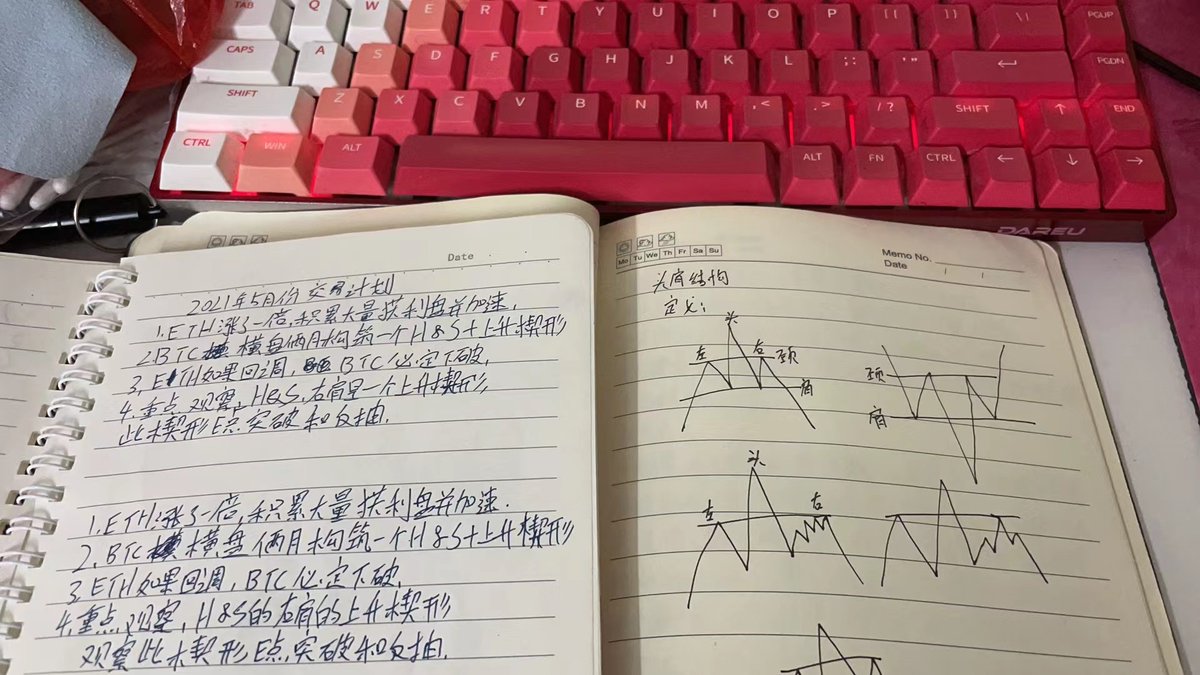 TAB Q W E R T Y U I O P [{ ]} \| PGUP
CAPS A S D F G H J K L ;: '" PGDN
SHIFT Z X C V B N M ,< .> /? SHIFT ↑ END
CTRL WIN ALT ALT FN CTRL ← ↓ →
DAREU
Date
2021年5月份交易计划
1.ETH涨了一倍,积累大量获利盘并加速.
2.BTC横盘俩月构筑一个H&S+上升楔形
3.ETH如果回调,BTC必定下破.
4.重点观察,H&S,右肩是一个上升楔形,
此楔形E点.突破和反抽.
1.ETH涨了一倍,积累大量获利盘并加速.
2.BTC横盘俩月构筑一个H&S+上升楔形
3.ETH如果回调,BTC必定下破.
4.重点观察,H&S的右肩的上升楔形
观察此楔形E点.突破和反抽.
Mo Tu We Th Fr Sa Su
Memo No.
Date / /
头肩结构
定义:
头
左 右 颈
肩
颈
肩
头
左 右